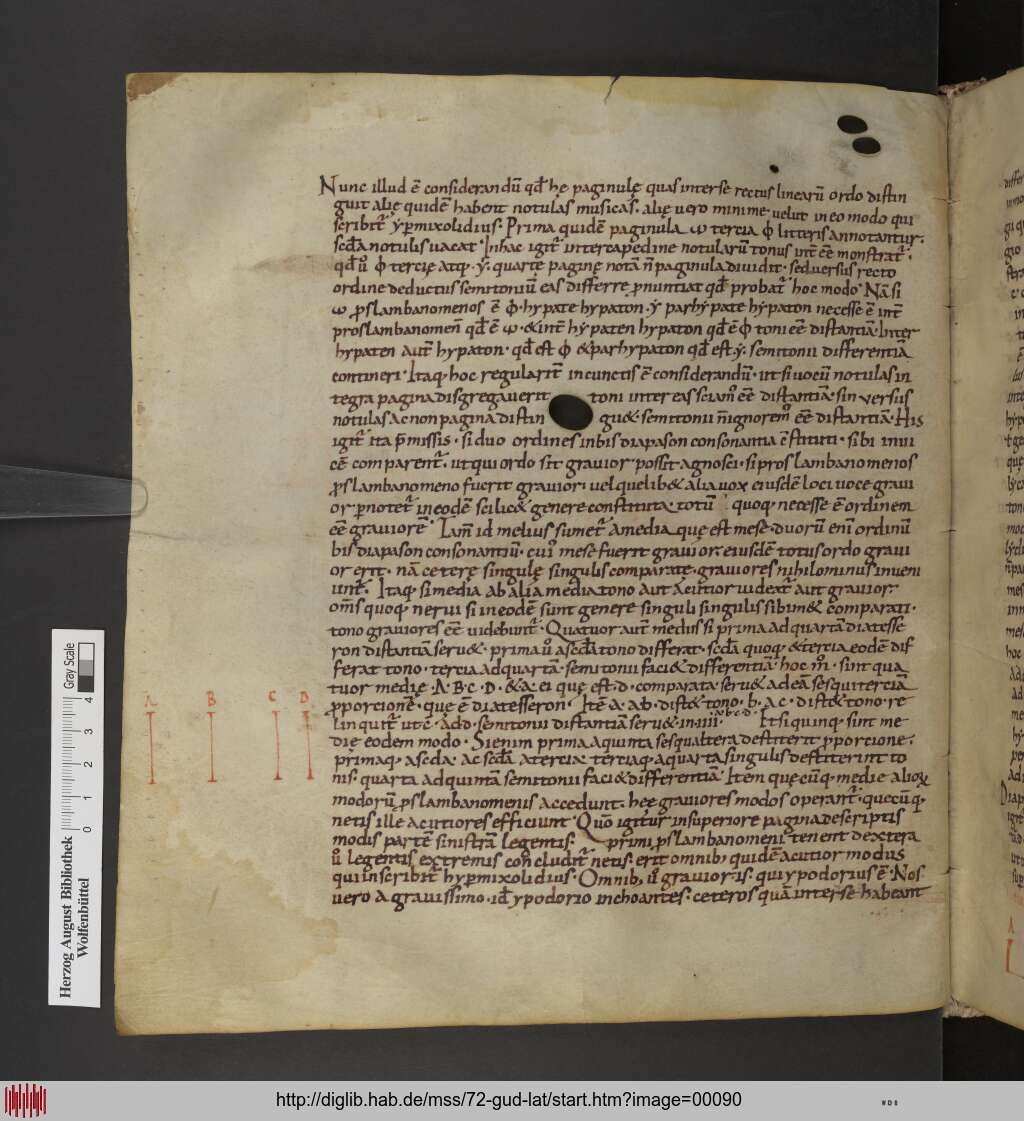 Nunc illud ē considerandū qđ hę paginulę quas inter se rectus linearū ordo distin
guit alię quidē habent notulas musicas. alię uero minime velut in eo modo qui
scribit̄ ẏꝑmixolidius. Prima quidē paginula ω tercia φ litteris annotantur.
scđa notulis uacat. In hac igit̄ intercapedine notularū tonus int̄ eē monstrat̄.
qđ ů φ tercię atq. ẏ. quarte pagine notā n̄ paginula diuidit. sed uersus recto
ordine deductus semitoniū eas differre ꝓnuntiat qđ probat̄ hoc modo. Nā si
ω ꝓslambanomenos ē φ. hypate hypaton. ẏ parhypate hypaton necesse ē int̄
proslambanomen̄ qđ ē ω. & int̄ hypaten hypaton qđ ē φ toni eē distantiā. Inter
hypaten aut̄ hypaton. qđ est φ & parhypaton qđ est ẏ. semitonii differentiā
contineri. Itaq. hoc regularit̄ in cunctis ē considerandū. ut si uocū notulas in
tegra pagina disgregauerit toni inter eas sciam̄ eē distantiā. sin versus
notulas ac non pagina distin gu&. semitonii n̄ ignorem̄ eē distantiā. His
igit̄ ita p̄missis. si duo ordines in bis diapason consonantia c̄stituti. sibi inui
cē comparent̄. ut qui ordo sit grauior possit agnosci. si proslambanomenos
ꝓslambanomeno fuerit grauior. uel quelib& alia uox eiusdē loci uoce graui
or ꝓnotet̄ in eodē scilic& genere constituta. totū quoq. necesse ē ordinem
eē grauiorē. Iam̄ id melius sumet̄ a media que est mese. duorū eni ordinū
bis diapason consonantiū. cui mese fuerit grauior. eiusdē totus ordo graui
or erit. nā cetere singule singulis comparate. grauiores nihilominus inueni
unt̄. Itaq. si media ab alia media tono aut acutior videat̄ aut grauior.
oms quoq. nerui si in eodē sunt genere singuli singulis sibim& comparati.
tono grauiores eē uidebunt̄. Quatuor aut̄ medus si prima ad quartā diatesse
ron distantiā seru&. prima ů a scđa tono differat. scđa quoq. & tercia eodē dif
ferat tono. tercia ad quartā. semitonii faci& differentiā hoc m̊. sint qua
tuor medie. A. B. C. D. & a. ei que est. d. comparata seru& ad eā sesquiterciā
ꝓporcionē. que ē diatesseron. Itē a. ab. dist& tono. b. a c. dist& tono. re
linquit̄ ut c. ad d. semitonii distantiā seru& in. iiii. a. b. c. d. Et si quinq. sint me
die eodem modo. Si enim prima a quinta sesqualtera destiterit ꝓporcione.
primaq. a scđa. ac scđa a tercia. terciaq. a quarta singulis destiterint to
nis. quarta ad quintā semitonii faci& differentiā. Item quęcūq. medie alioꝝ
modorū ꝓslambanomenis accedunt. hee grauiores modos operant̄. quecūq.
netis ille acutiores efficiunt. Quō igitur in superiore pagina descriptis
modis partē sinistrā legentis. primi ꝓslambanomeni tenent dextera
ů legentis extremis concludit̄ netis. erit omnib; quidē acutior modus
qui inscribit̄ hyꝑmixolidius. Omnib; ů grauior is. qui ypodorius ē. Nos
uero a grauissimo. id ypodorio inchoantes. ceteros quā inter se habeant
A B C D
Herzog August Bibliothek
Wolfenbüttel
0 1 2 3 4
Gray Scale
http://diglib.hab.de/mss/72-gud-lat/start.htm?image=00090